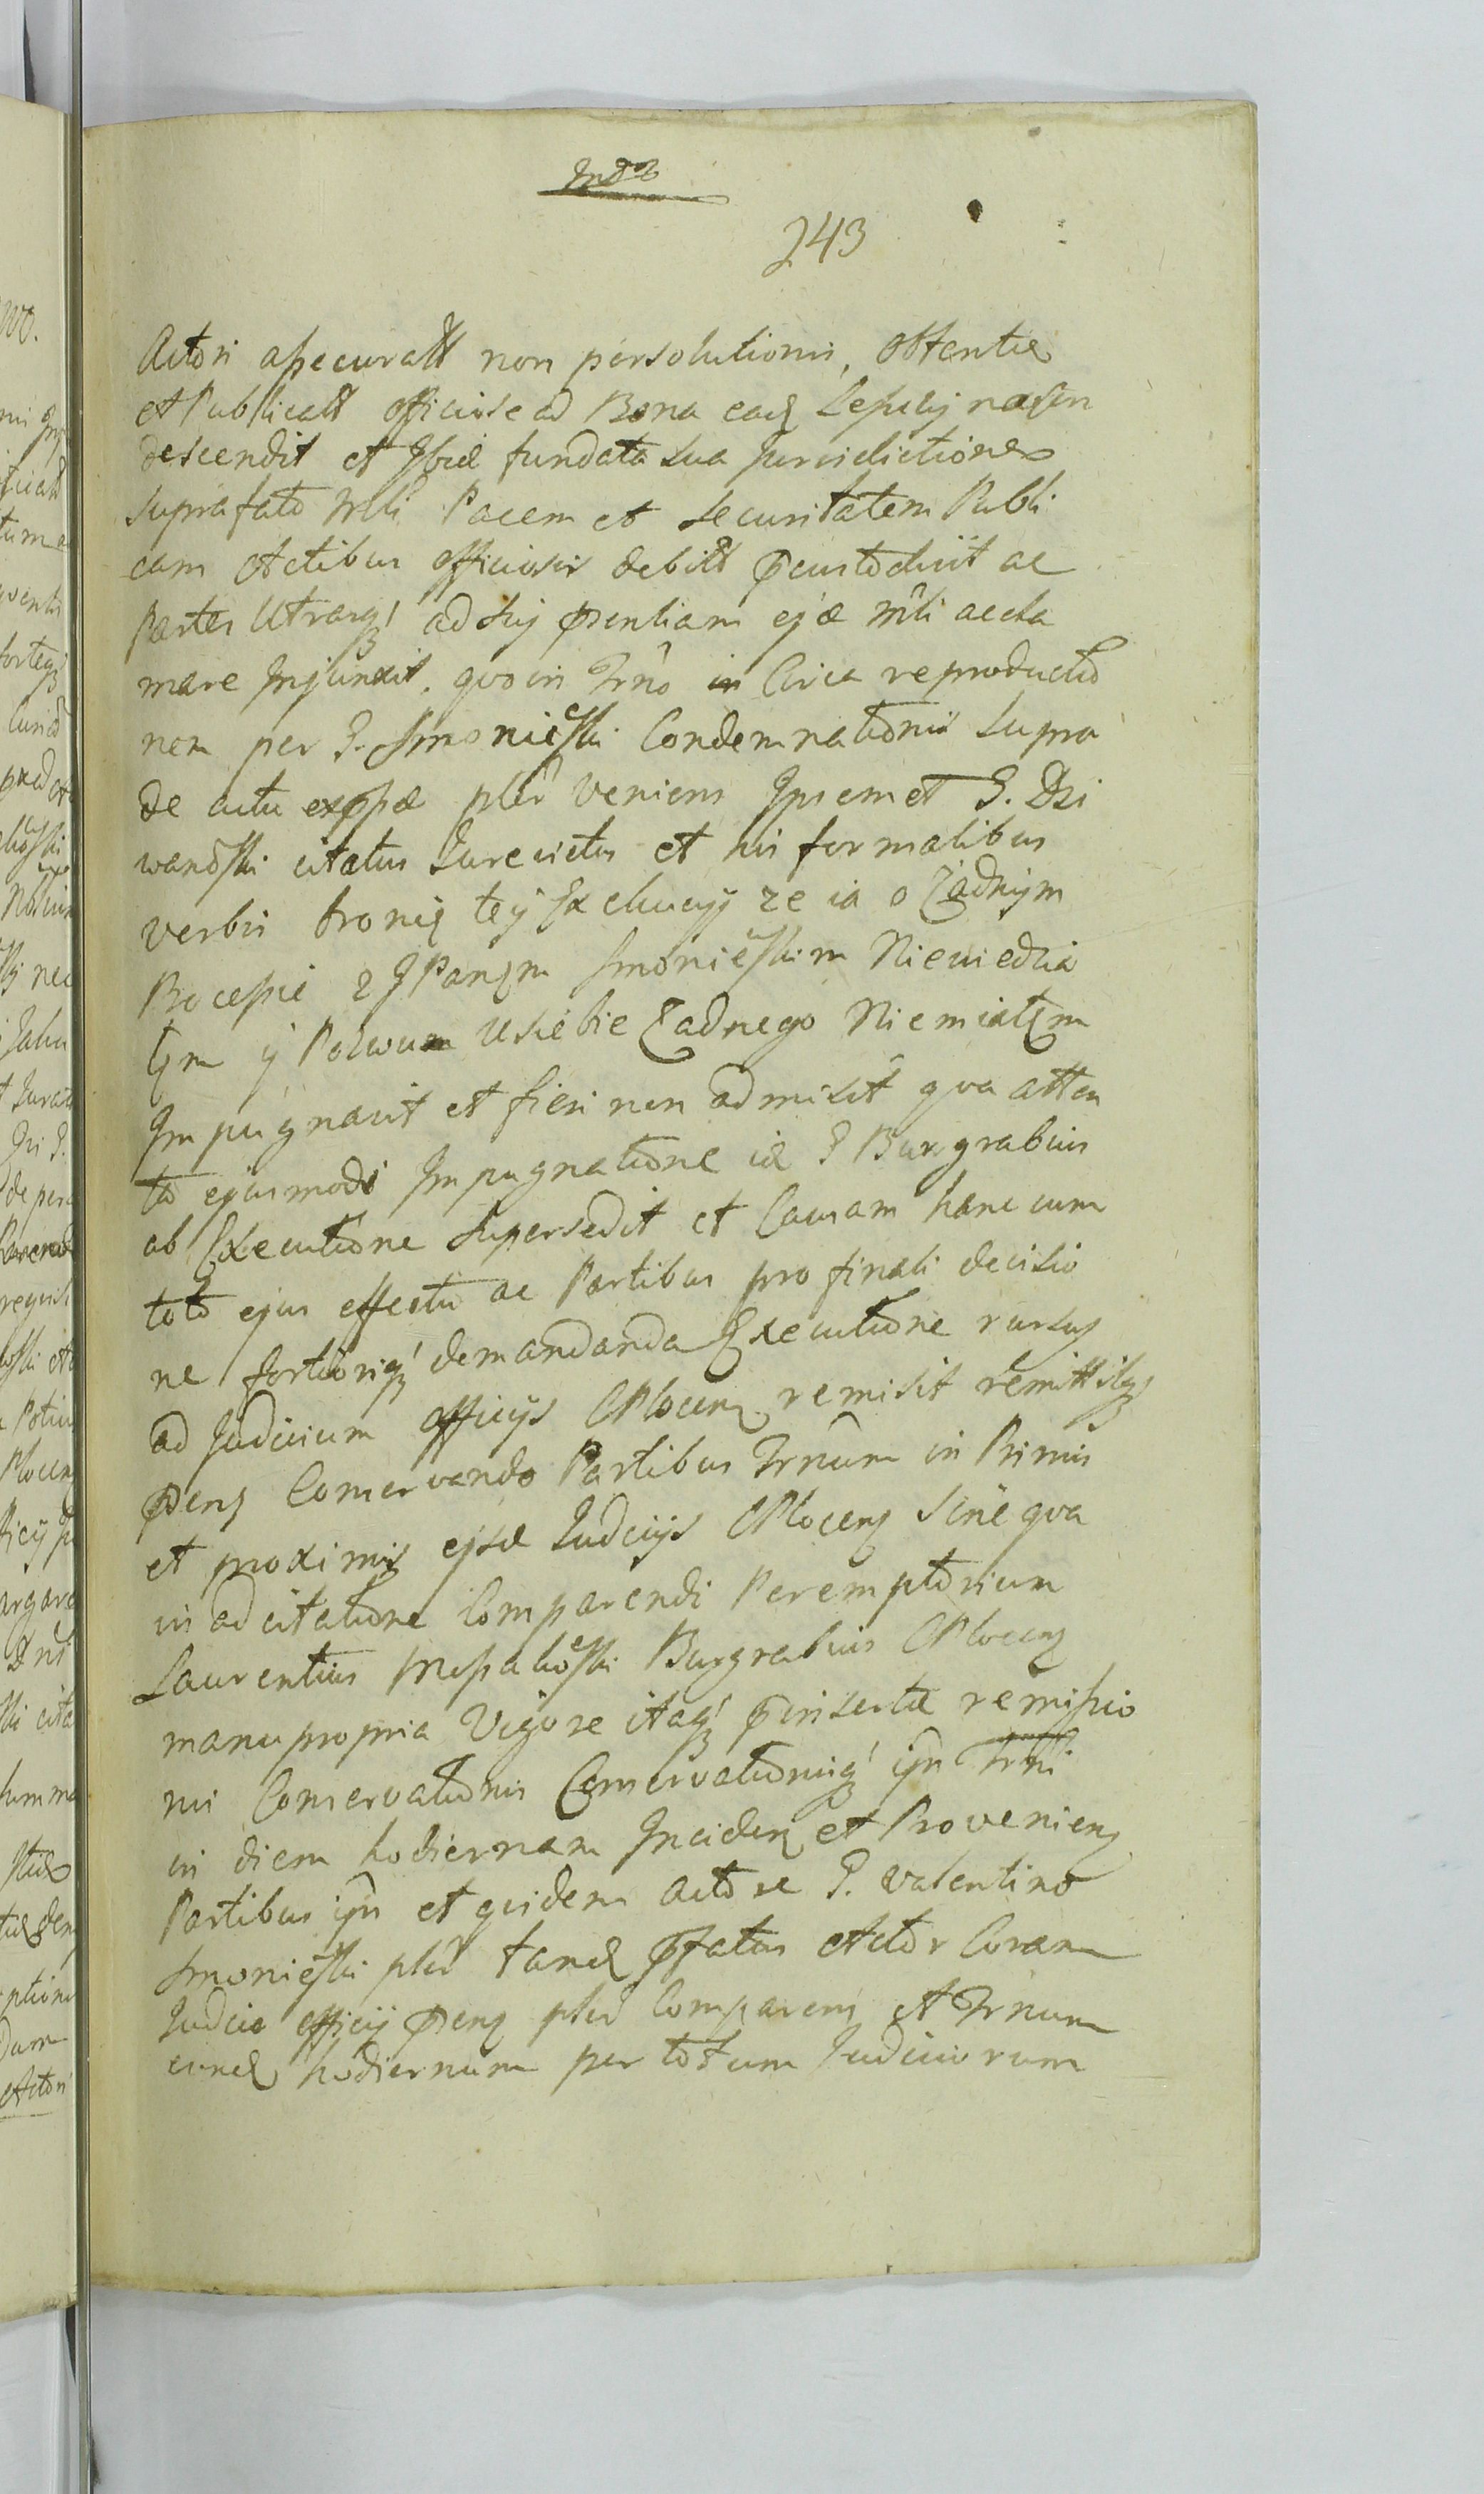 243
Actori assecuratt non persolutionis, obtentæ
et Publicatt officiose ad Bona eadꝫ
descendit et Ibid fundata sua Jurisdictione
suprafato Mli Pacem et securitatem Publi
cam Actibus officiosis debitt pcustodivit ac
Partes Utrasqꝫ ad suj pntiam ejæ mli accla
mare Injunxit, quo in Trno in Circa reproductio
nem per G. Smonieski Condemnationis supra
de actu expssæ plr veniens Ipsemet G. Dzi
wanoski citatus Jurevictus et his formalibus
verbis bronię tey Exekucyj ze ia o Żadnym
Processie z JPanęm Smonieskim Niewiedzia
łęm y Pozwu Usiebie Żadnego Niemiałęm
Impugnavit et fieri non admisit qua atten
to ejusmodi Impugnatione id G Burgrabius
ab Executione supersedit et Causam hanc cum
toto ejus effectu ac Partibus pro finali decisio
ne fortioriqꝫ demandanda Executione rursus
ad Judicium officijs CPlocenꝫ remisit remittitqꝫ
pᷤenꝫ Conservando Partibus Trnum in Primis
et proximis ejsd Judicijs CPlocenꝫ sine qua
vis adcitatione Comparendi Peremptorium
Laurentius Burgrabius CPlocenꝫ
manu propria Vigore itaqꝫ pinsertæ remissio
nis Conservationis Conservationisqꝫ ijn Trni
in diem hodiernam Inciden et Provenienꝫ
Partibus ijn et quidem Actore G. Valentino
Smonieski plr tandꝫ pfatus Actor Coram
Judicio officij pᷤenꝫ plr Comparens et Trnum
eundꝫ hodiernum per totum Judiciorum